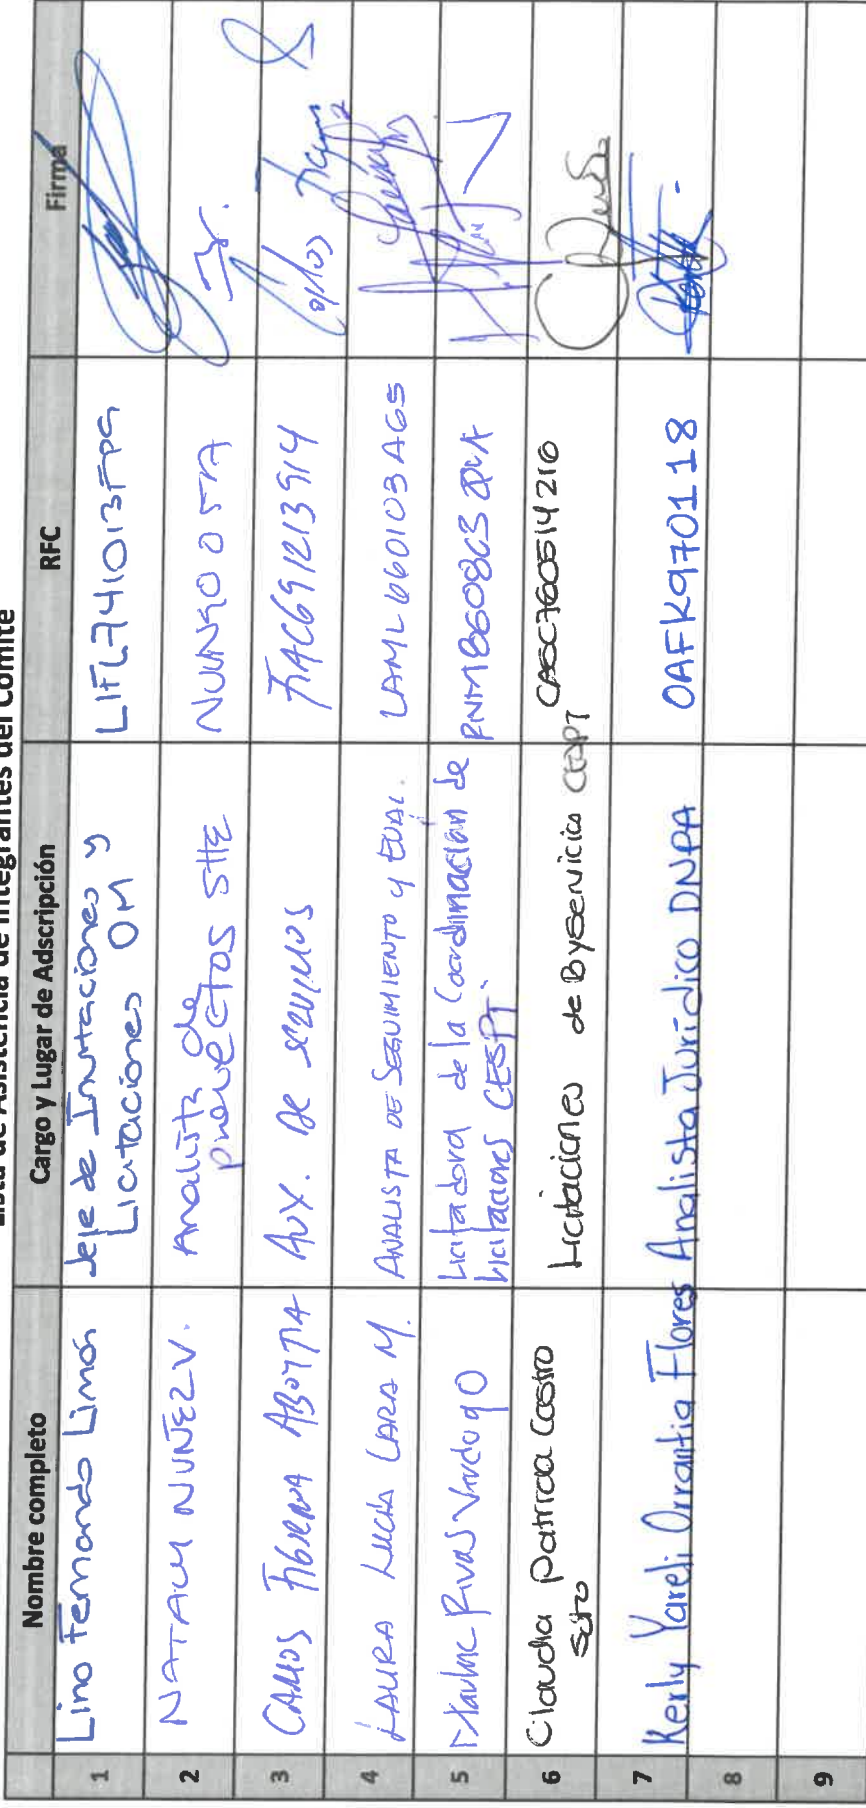 Lista de Asistencia de Integrantes del Comité
Nombre completo Cargo y Lugar de Adscripción RFC Firma
1 Lino Fernando Limón Jefe de Invitaciones y LIFL741013FP9
Licitaciones OM
2 NATALY NUÑEZ V. Analista de
proyectos SHE
3 CARLOS FIGUEROA Aux. De FIAC691213914 Carlos Figueroa
4 LAURA LUCIA LARA M. ANALISTA DE SEGUIMIENTO y EVAL. LAML660103AG5
5 Rivas Verdugo Licitadora de la Coordinación de
Licitaciones CESPT
6 Claudia Patricia Castro Licitaciones de ByServicios CESPT CASC760514216
Soto
7 Kerly Yareli Orrantia Flores Analista Jurídico DNPA OAFK970118
8
9